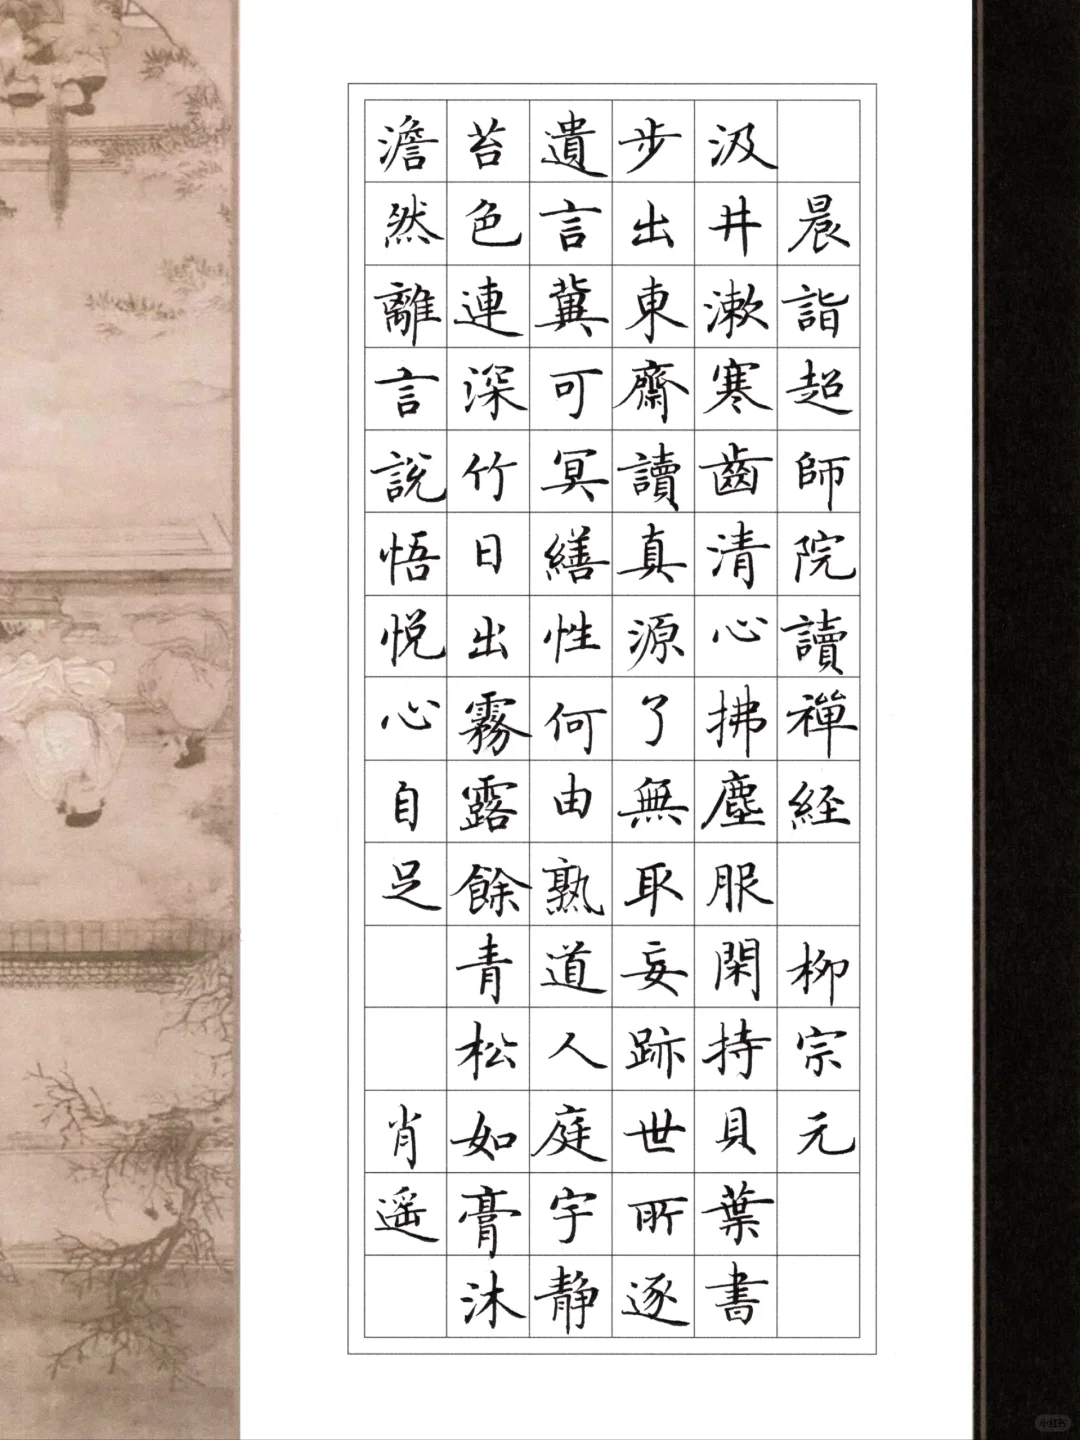 晨詣超師院讀禪経 柳宗元
汲井漱寒齒清心拂塵服閑持貝葉書
步出東齋讀真源了無取妄跡世所逐
遺言冀可冥繕性何由熟道人庭宇静
苔色連深竹日出霧露餘青松如膏沐
澹然離言說悟悦心自足 肖遥
小红书